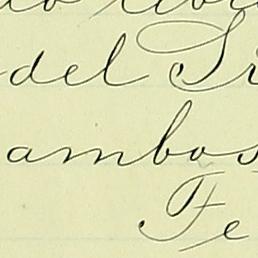 del Sr
ambos
Fe